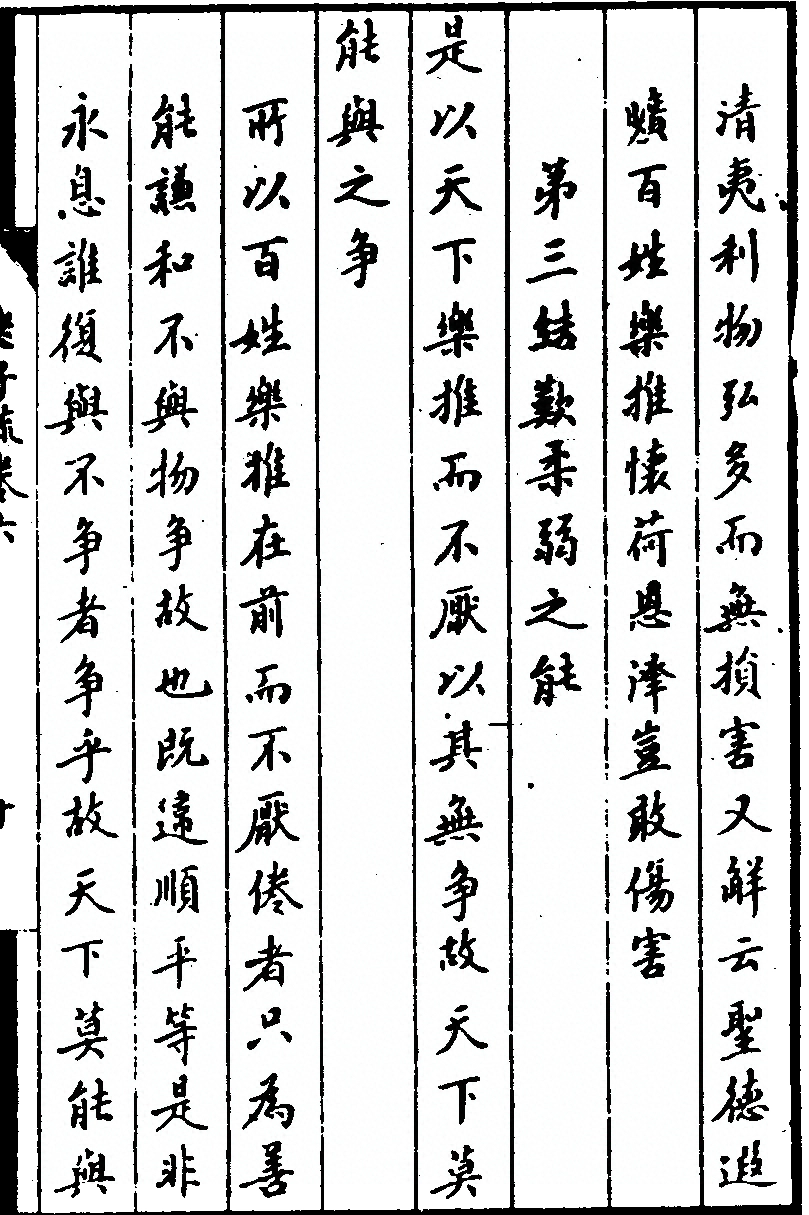 清夷利物弘多而無損害又解云聖德遐
曠百姓樂推懷荷恩澤豈敢傷害
第三結歎柔弱之能
是以天下樂推而不厭以其無争故天下莫
能與之争
所以百姓樂推在前而不厭倦者只為善
能謙和不與物争故也既違順平等是非
永息誰復與不争者争乎故天下莫能與